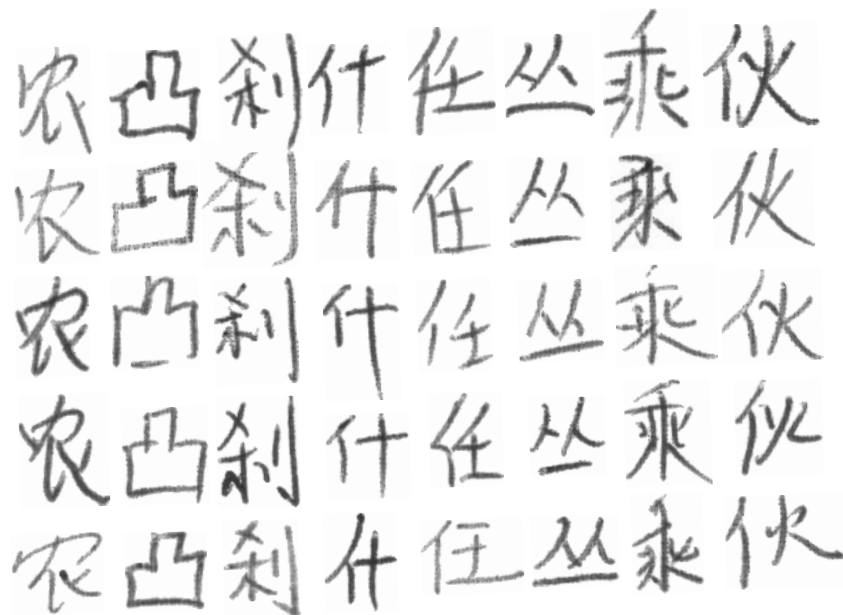 农凸刹什任丛乘伙
农凸刹什任丛乘伙
农凸刹什任丛乘伙
农凸刹什任丛乘伙
农凸刹什任丛乘伙